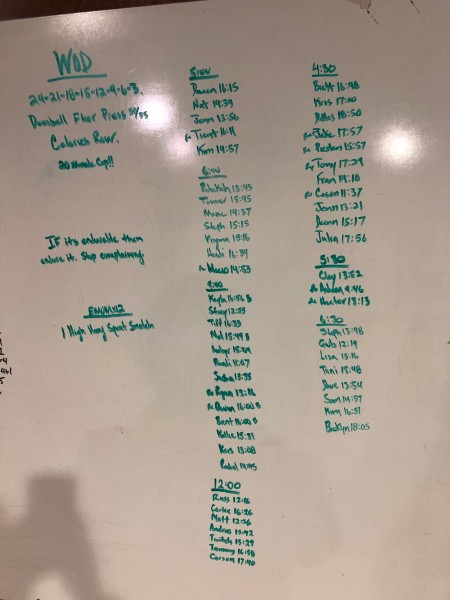 WOD
24-21-18-15-12-9-6-3
Dumbbell Floor Press 50/35
Calories Row.
20 Minute Cap!!
IF it's endurable then
endure it. Stop complaining
EMOM x12
1 High Hang Squat Snatch
5:00
16:15
Nat 14:39
Jenn 13:56
Trent 16:11
Kim 14:57
6:00
Rebekah 13:45
Tanner 15:45
14:37
Steph 15:15
Virginia 15:16
Heidi 16:34
14:53
9:00
Kayla 16:56
Stacy 12:35
Tiff 16:33
15:49
15:09
11:07
15:35
Rx Ryan 13:16
16:00
Brent 16:00
Kellie 15:31
13:08
14:45
12:00
Russ 12:16
Carlee 16:26
Matt 12:36
Andrea 15:42
Twitch 15:29
Tammy 16:58
Carson 17:40
4:30
Brett 16:48
Kris 17:00
18:50
Rx Jake 17:57
Rx Preston 15:57
Rx Tony 17:29
Fran 14:10
Rx Cason 11:37
Jenn 13:21
Deann 15:17
Julia 17:56
5:30
Clay 13:52
9:46
Rx Hector 13:13
6:30
Steph 13:48
Gwb 12:19
Lisa 15:16
Toni 15:48
Dave 13:54
Sam 14:57
Kim 16:51
Booklyn 18:05